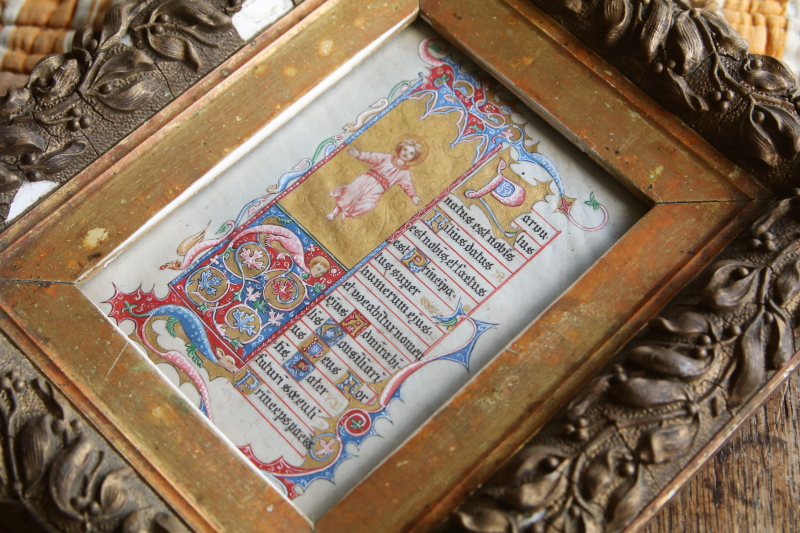 Parvu
lus
natus est nobis
Filius datus
est nobis, et factus
est Principa-
tus super
humerum ejus:
et vocabitur nomen
ejus Admirabi
lis Consiliari
us Deus For
tis Pater
futuri sæculi
Princeps pacis